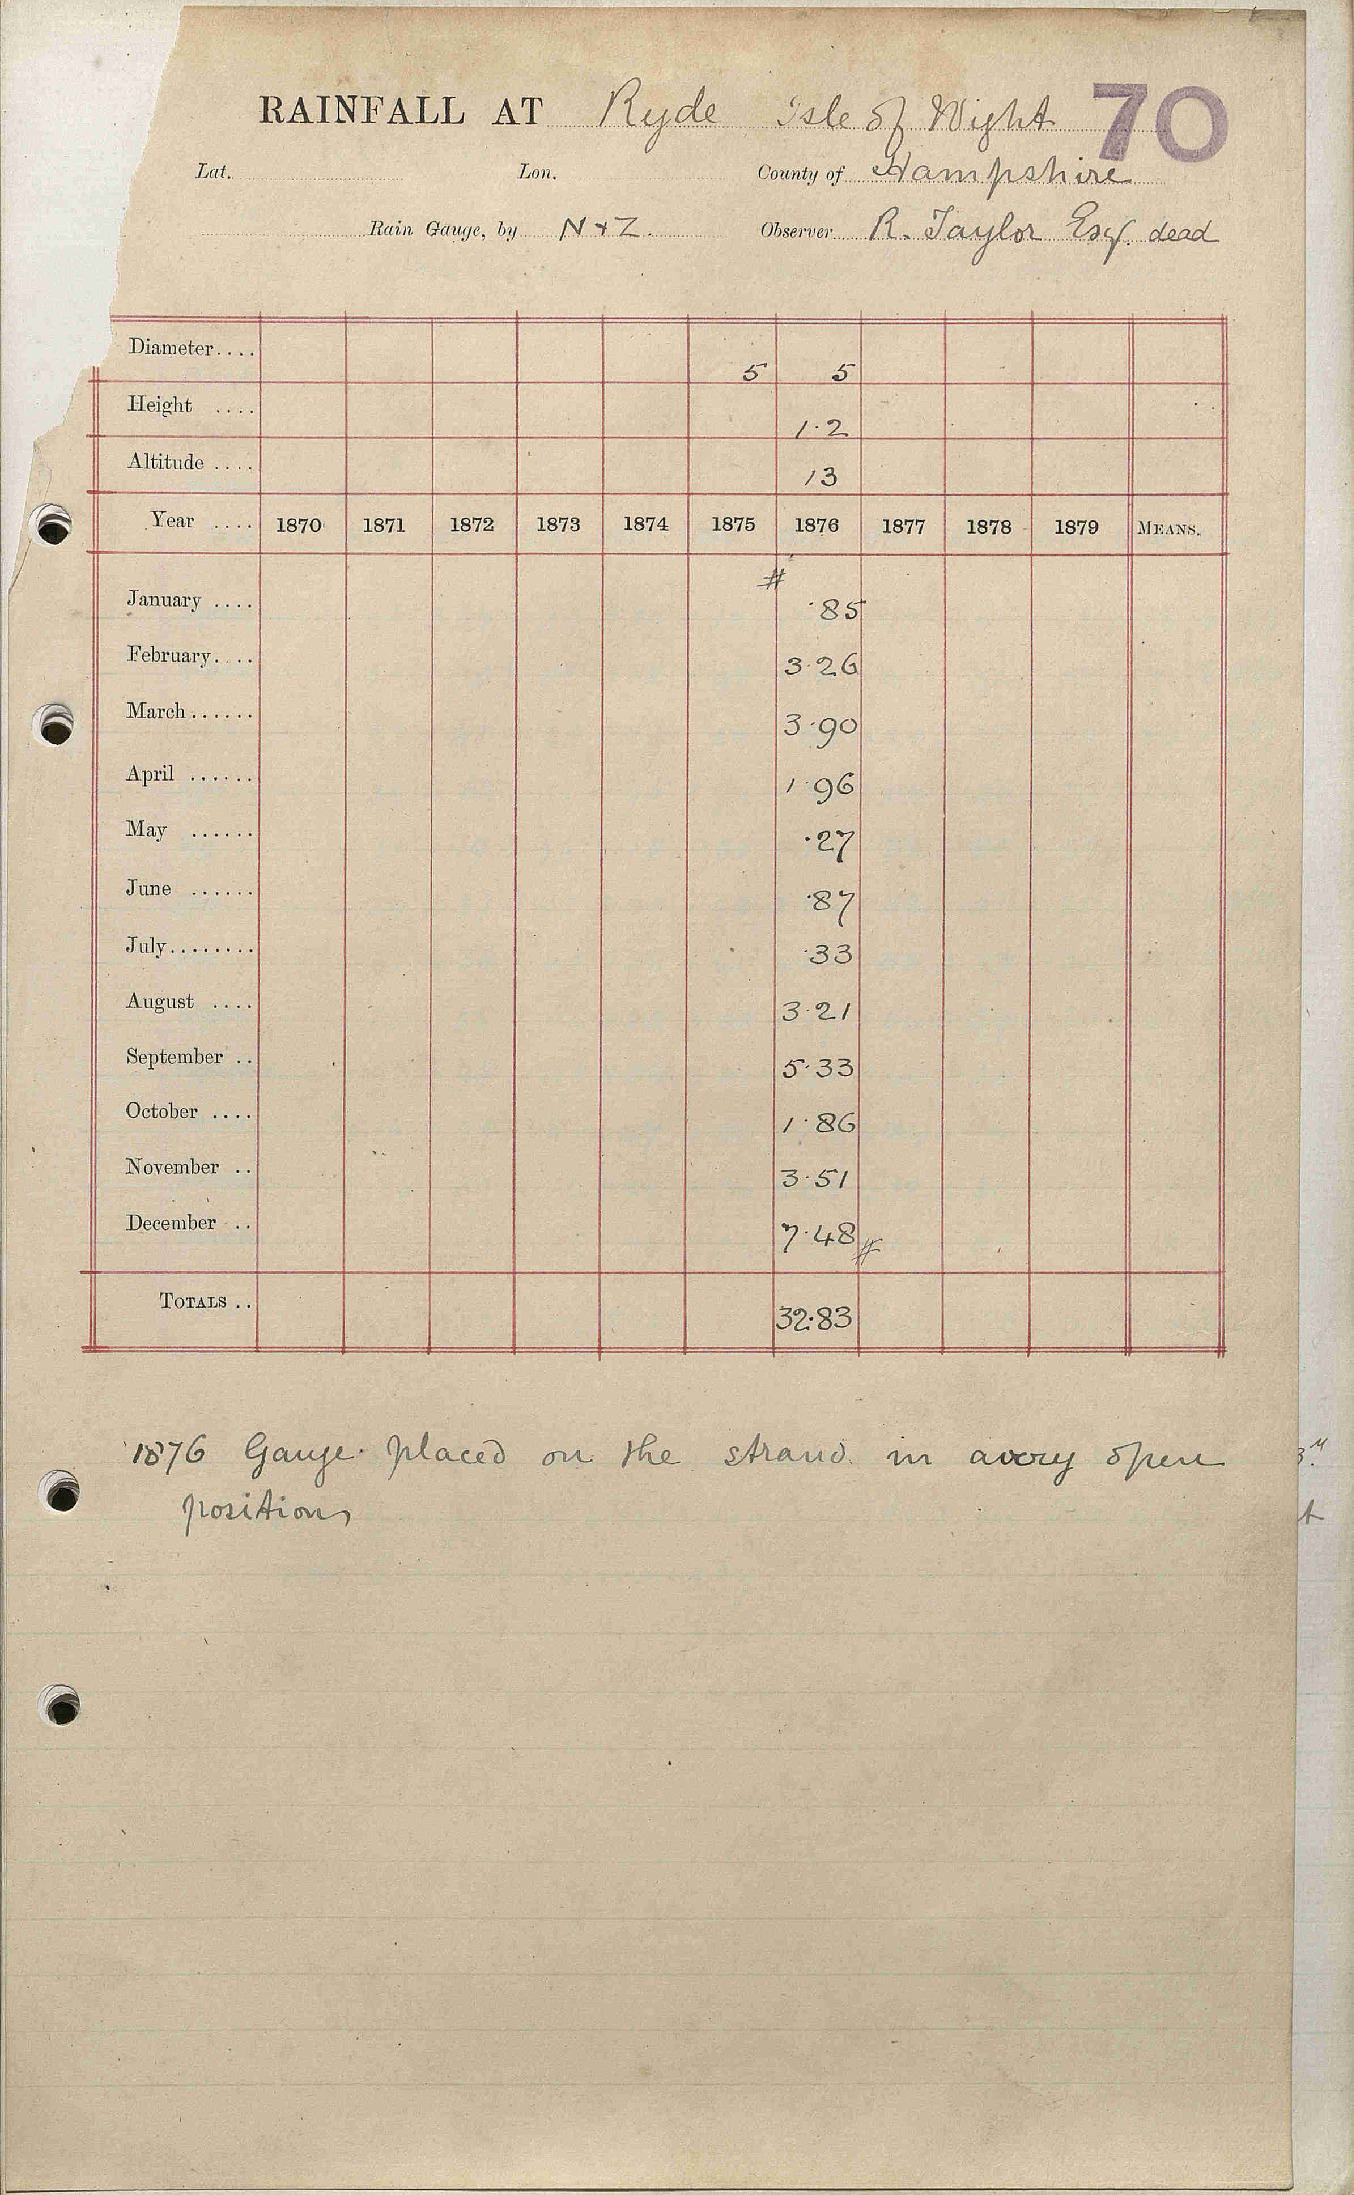 RAINFALL AT Ryde Isle of Wight 70
Lat. Lon. County of Hampshire
Rain Gauge, by N+Z. Observer R. Taylor Esq. dead
Diameter.... 5 5
Height .... 1.2
Altitude .... 13
Year .... 1870 1871 1872 1873 1874 1875 1876 1877 1878 1879 MEANS.
#
January .... .85
February.... 3.26
March...... 3.90
April ...... 1.96
May ...... .27
June ...... .87
July........ .33
August .... 3.21
September .. 5.33
October .... 1.86
November .. 3.51
December .. 7.48 #
TOTALS .. 32.83
1876 Gauge placed on the strand in a very open
position